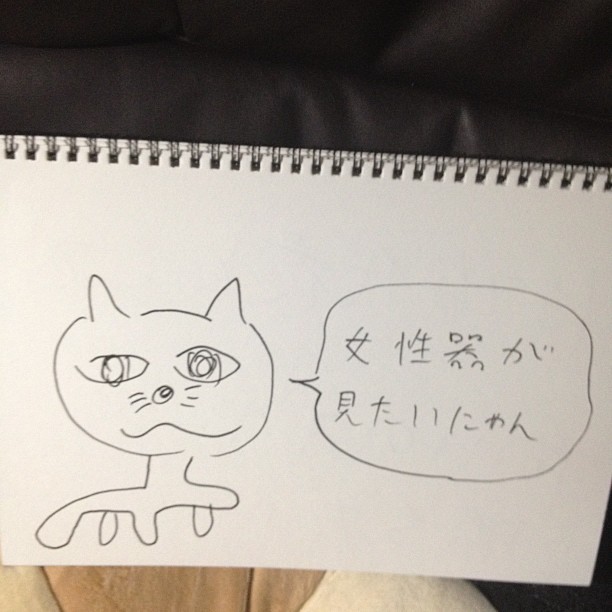 女性器が
見たいにゃん